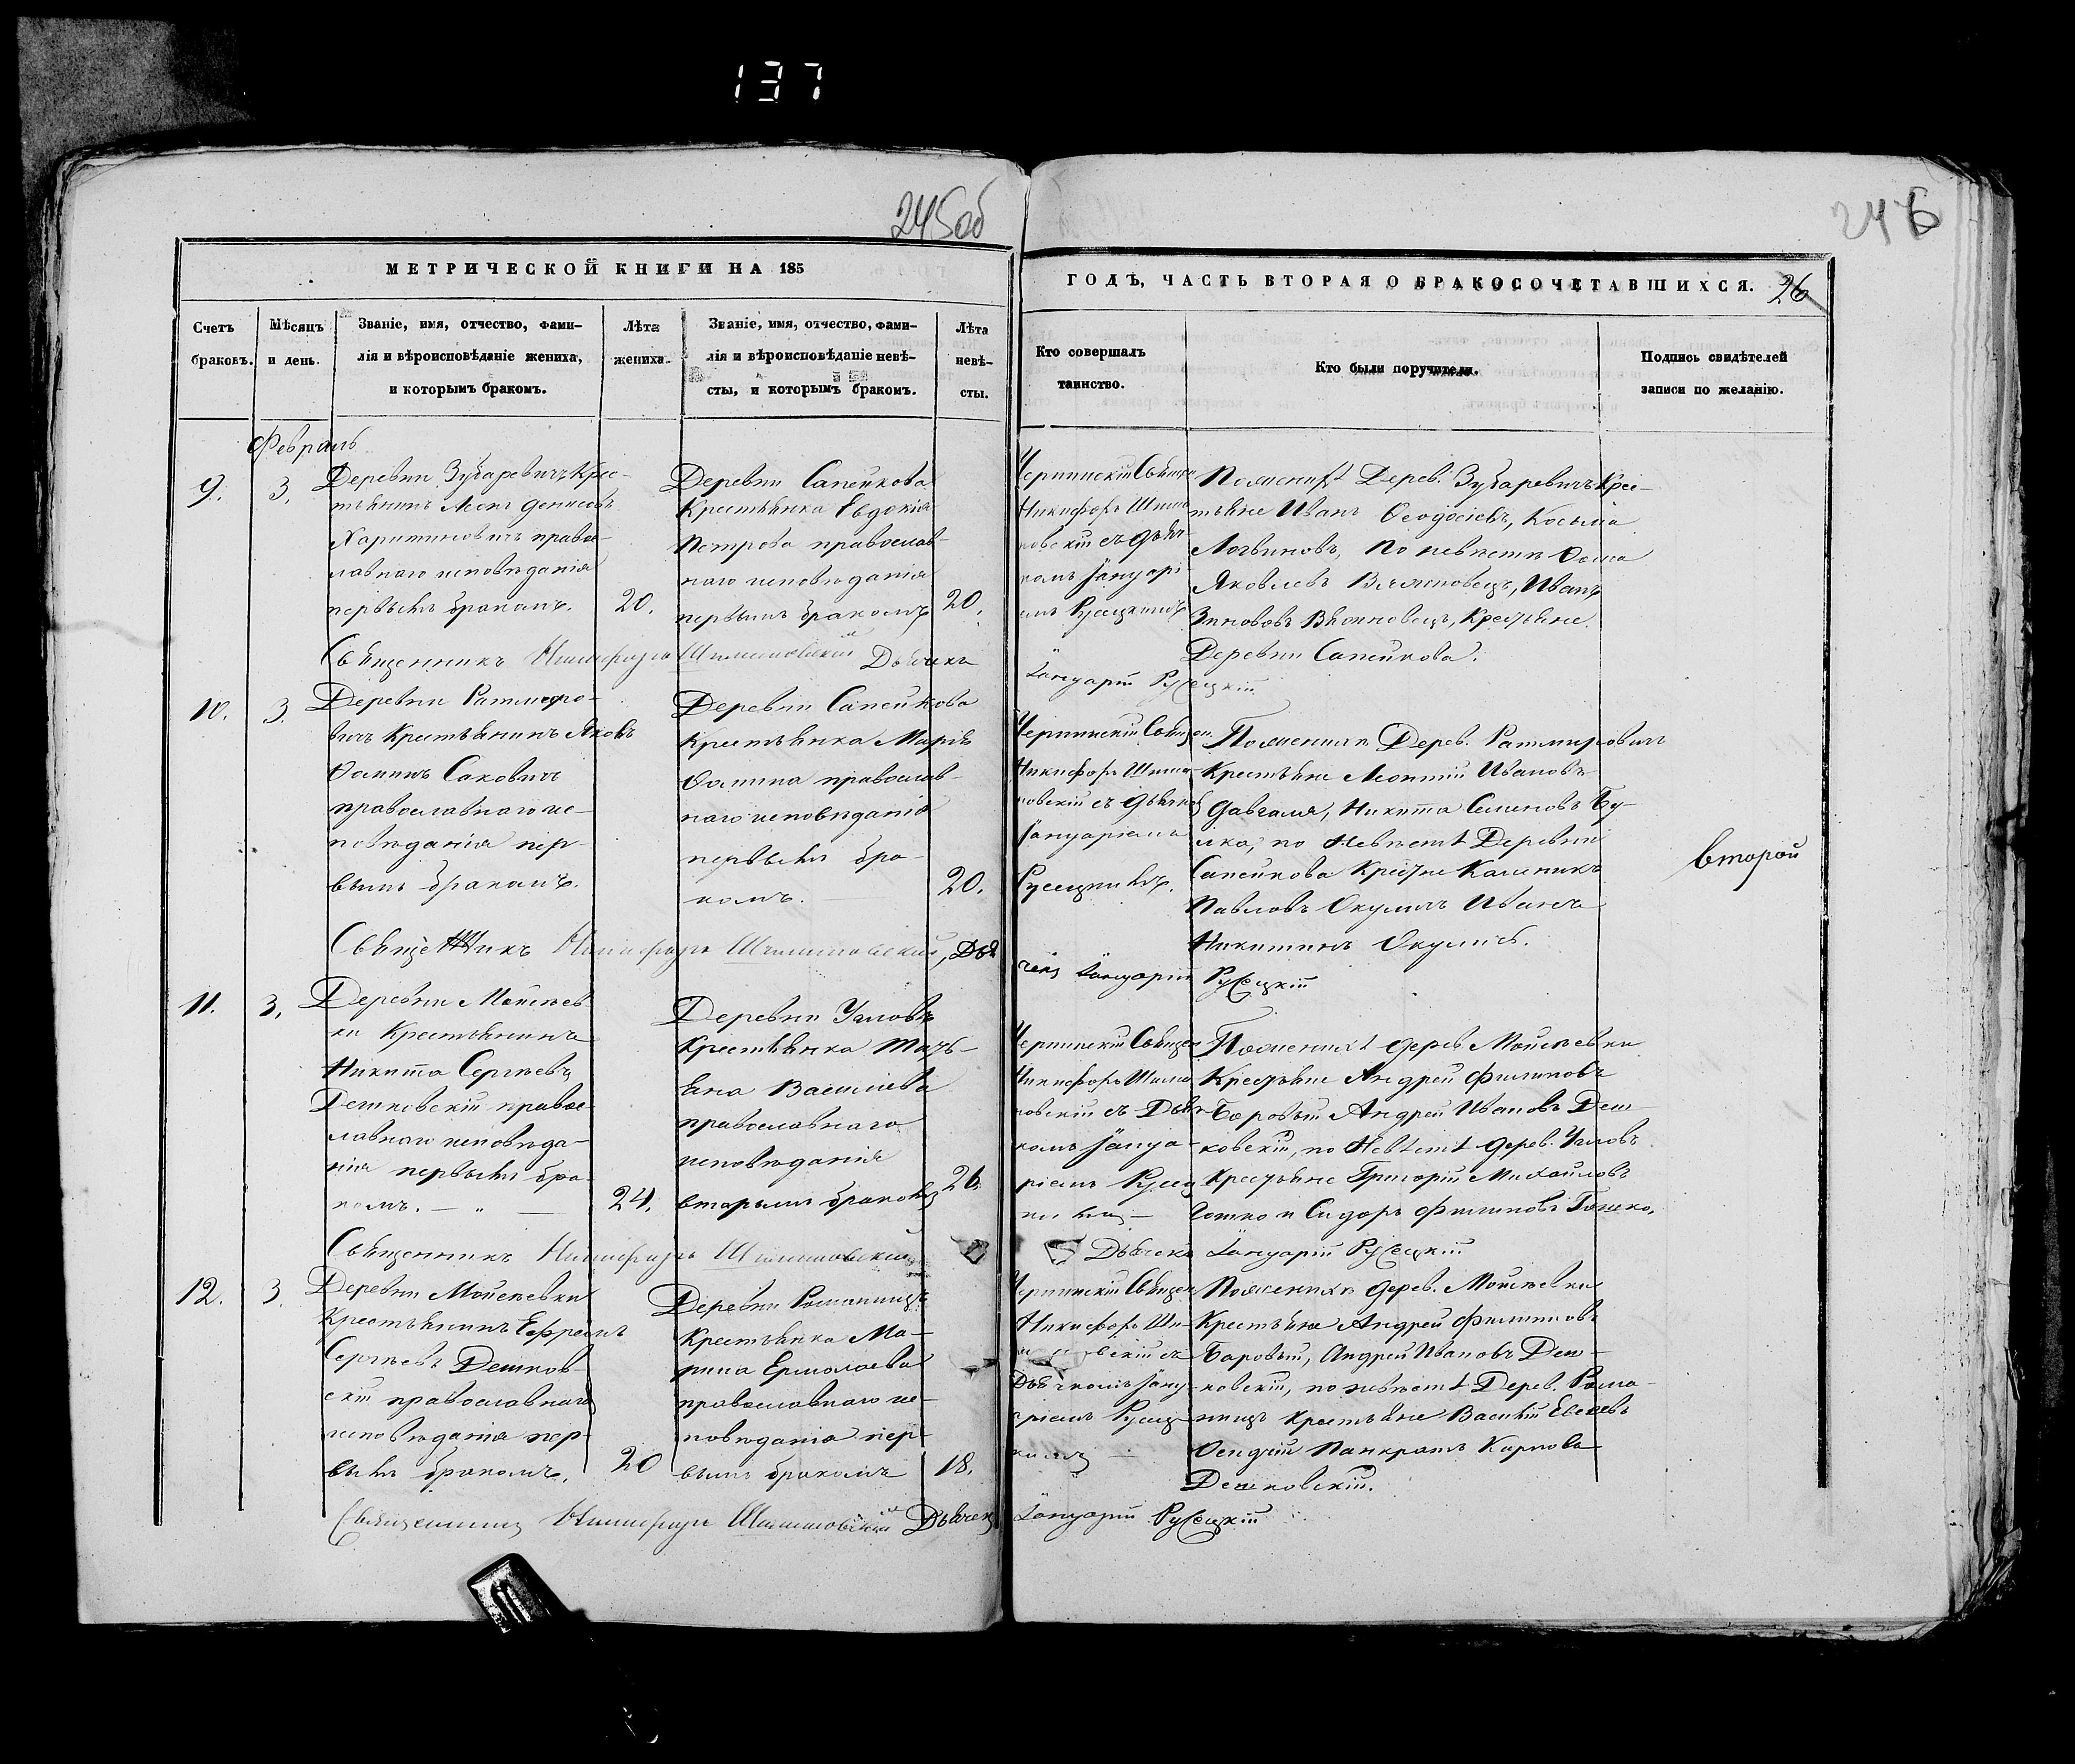 137
245об
246
МЕТРИЧЕСКОЙ КНИГИ НА 185
ГОДЪ, ЧАСТЬ ВТОРАЯ О БРАКОСОЧЕТАВШИХСЯ.
26
Счетъ
браковъ.
Мѣсяцъ
и день.
Званіе, имя, отчество, фами-
лія и вѣроисповѣданіе жениха,
и которымъ бракомъ.
Лѣта
жениха.
Званіе, имя, отчество, фами-
лія и вѣроисповѣданіе невѣ-
сты, и которымъ бракомъ.
Лѣта
невѣ-
сты.
Кто совершалъ
таинство.
Кто были поручители.
Подпись свидѣтелей
записи по желанію.
Февраль
9.
3.
Деревни Зубаревичъ Крес-
тьянинъ Леонъ Денисовъ
Харитоновичъ право-
славнаго исповѣданія
первымъ бракомъ.
20.
Деревни Сапейкова
Крестьянка Евдокія
Петрова православ-
наго исповѣданія
первымъ бракомъ
20.
Никифоръ Шима
новскій съ дьяч
комъ Януарі
емъ Русецкимъ
Дерев. Зубаревичъ Крес-
тьяне Иванъ Ѳеодосіевъ, Косьма
Логвиновъ, По невѣстѣ Ѳома
Яковлевъ Иванъ
Крестьяне
Деревни Сапейкова.
Священникъ Никифоръ Шимановскій Дьячекъ
Януарій Русецкій
10.
3.
Деревни Ратмиро-
вичъ Крестьянинъ Яковъ
Ѳоминъ Саковичъ
православнаго ис-
повѣданія пер-
вымъ бракомъ.
Деревни Сапейкова
Крестьянка Марія
Ѳомина православ-
наго исповѣданія
первымъ бра-
комъ.
20.
Никифоръ Шима
новскій съ дьячком
Януаріемъ
Русецкимъ.
По женихѣ Дерев. Ратмировичъ
Крестьяне Леонтій Ивановъ
Никита Семеновъ Бу-
по Невѣстѣ Деревни
Сапейкова Крестьяне Калиникъ
Павловъ Окуличъ Иванъ
Никитинъ Окуличъ.
второй
Священникъ Никифоръ Шимановскій, Дья
чекъ Януарій Русецкій
11.
3.
Деревни Моисеев
ки Крестьянинъ
Никита Сергѣевъ
Дешковскій право-
славнаго исповѣда-
нія первымъ бра-
комъ. — „ —
24.
Деревни Угловъ
Крестьянка Тать-
яна Васильева
православнаго
исповѣданія
вторымъ бракомъ
26.
Никифоръ Шима
новскій съ Дьяч
комъ Януа-
ріемъ Русец
кимъ —
По женихѣ дерев Моисеевки
Крестьяне Андрей Филиповъ
Боровый Андрей Ивановъ Деш-
ковскій, по Невѣстѣ дерев. Угловъ
Крестьяне Григорій Михайловъ
и Сидоръ Филиповъ
Священникъ Никифоръ Шимановскій
Дьячекъ Януарій Русецкій
12.
3.
Деревни Моисеевки
Крестьянинъ Ефремъ
Сергѣевъ Дешков-
скій православнаго
исповѣданія пер-
вымъ бракомъ.
20
Деревни Романищъ
Крестьянка Ма-
рина Ермолаева
православнаго ис-
повѣданія пер-
вымъ бракомъ
18.
Никифоръ Ши-
новскій съ
Дьячкомъ Януа-
ріемъ Русец-
кимъ —
По женихѣ дерев. Моисеевки
Крестьяне Андрей Филиповъ
Боровый, Андрей Ивановъ Деш-
ковскій, по невѣстѣ Дерев. Рома-
нищъ крестьяне Василій
Панкратъ Карповъ
Дешковскій.
Священникъ Никифоръ Шимановскій Дьячекъ
Януарій Русецкій